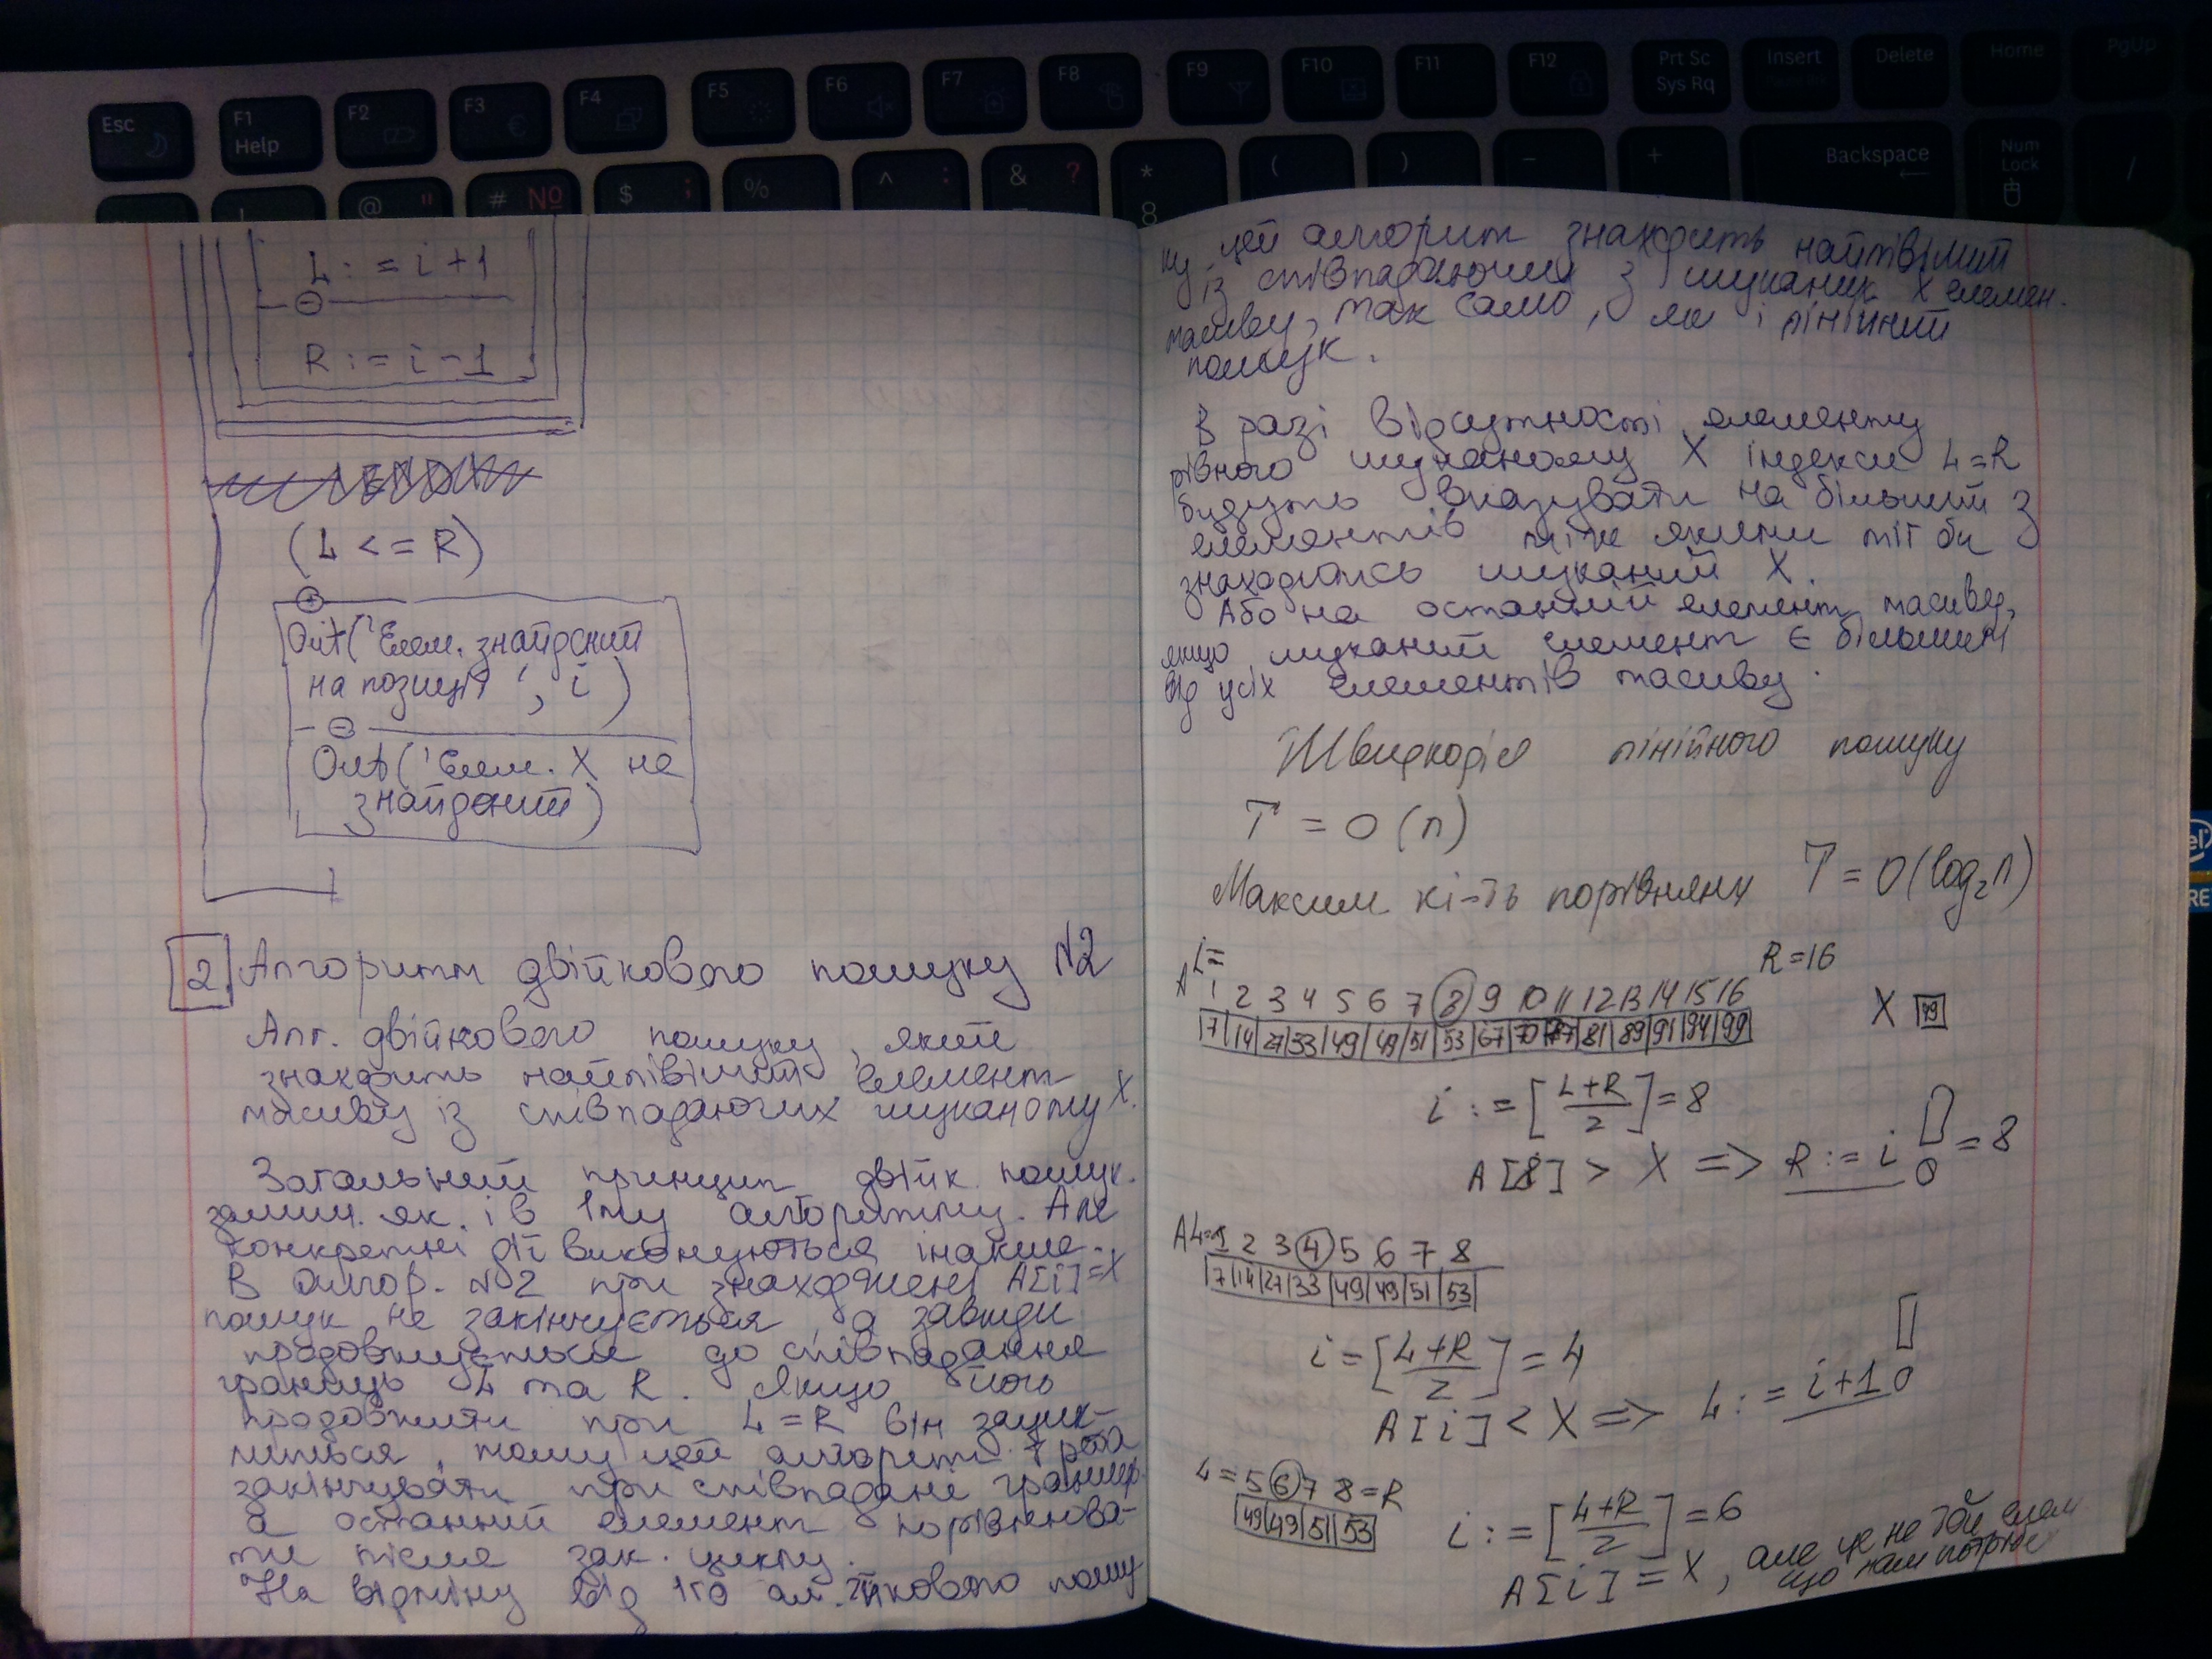 Esc
F1
Help
F2
F3
F4
F5
F6
F7
F8
F9
F10
F11
F12
Prt Sc
Sys Rq
Insert
Delete
Home
PgUp
@ "
# №
$ ;
%
^ :
& ?
*
8
(
)
-
+
Backspace
Num
Lock
/
L := i+1
R := i-1
(L <= R)
Out('Елем. знайдений
на позиції ', i)
Out('Елем. X не
знайдений)
2. Алгоритм двійкового пошуку №2
Алг. двійкового пошуку, який
знаходить найлівіший елемент
масиву із співпадаючих шуканому X.
Загальний принцип двійк. пошук.
залиш. як. і в 1му алгоритму. Але
конкретні дії виконуються інакше.
В алгор. №2 при знаходжені A[i]=X
пошук не закінчується, а завжди
продовжується до співпадання
границь L та R. Якщо його
продовжити при L=R він зацик-
литься, тому цей алгоритм треба
закінчувати при співпадані границь
а останній елемент порівнюва-
ти після зак. циклу.
На відміну від 1го ал. двійкового пошу
ку цей алгоритм знаходить найлівіший
із співпадаючих з шуканим X елемен.
масиву, так само, як і лінійний
пошук.
В разі відсутності елементу
рівного шуканому X індекси L=R
будуть вказувати на більший з
елементів між якими міг би
знаходитись шуканий X.
Або на останній елемент масиву,
якщо шуканий елемент є більшим
від усіх елементів масиву.
Швидкодія лінійного пошуку
T = O(n)
Максим. кі-ть порівнянь T = O(log₂n)
L= R=16
A 1 2 3 4 5 6 7 8 9 10 11 12 13 14 15 16
7 14 27 33 49 49 51 53 67 70 77 81 89 91 94 99
X 49
i := [L+R/2] = 8
A[8] > X => R := i ! = 8
A L=1 2 3 4 5 6 7 8
7 14 27 33 49 49 51 53
i = [L+R/2] = 4
A[i] < X => L := i+1 !
L = 5 6 7 8 = R
49 49 51 53
i := [L+R/2] = 6
A[i] = X, але це не той елем
що нам потрібен